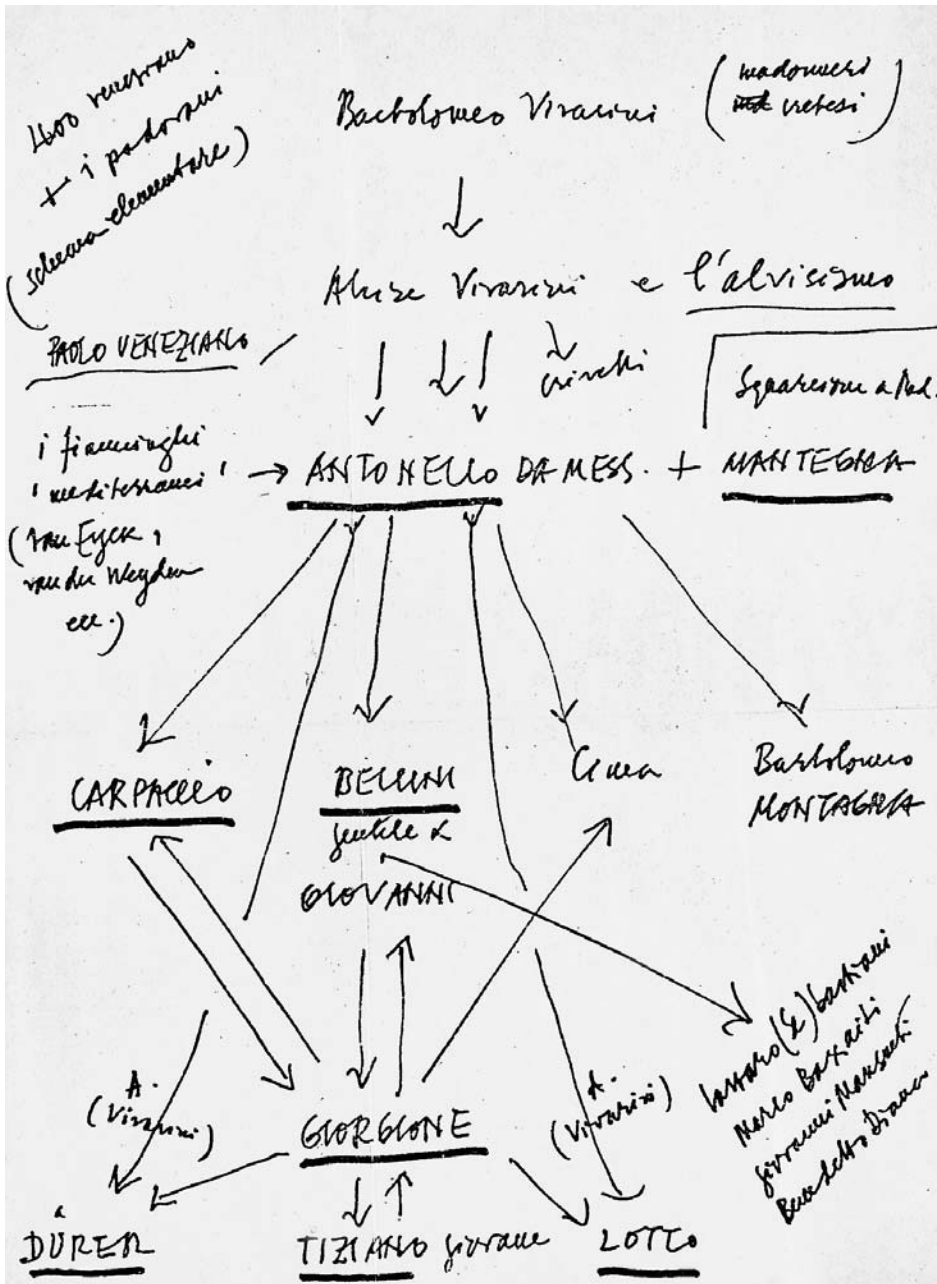 400 veneziano
+ i padovani
(schema elementare)
Bartolomeo Vivarini
(madonneri
cretesi)
Alvise Vivarini e l'alvisismo
PAOLO VENEZIANO
crivelli
Squarcione a Pad.
i fiamminghi
'mediterranei'
(van Eyck,
van der Weyden
ecc.)
→ ANTONELLO DA MESS. + MANTEGNA
CARPACCIO
BELLINI
gentile &
GIOVANNI
Cima
Bartolomeo
MONTAGNA
A.
(Vivarini)
A.
(Vivarini)
lazzaro (&) bastiani
Marco Basaiti
giovanni Mansueti
Benedetto Diana
GIORGIONE
DÜRER
TIZIANO giovane
LOTTO